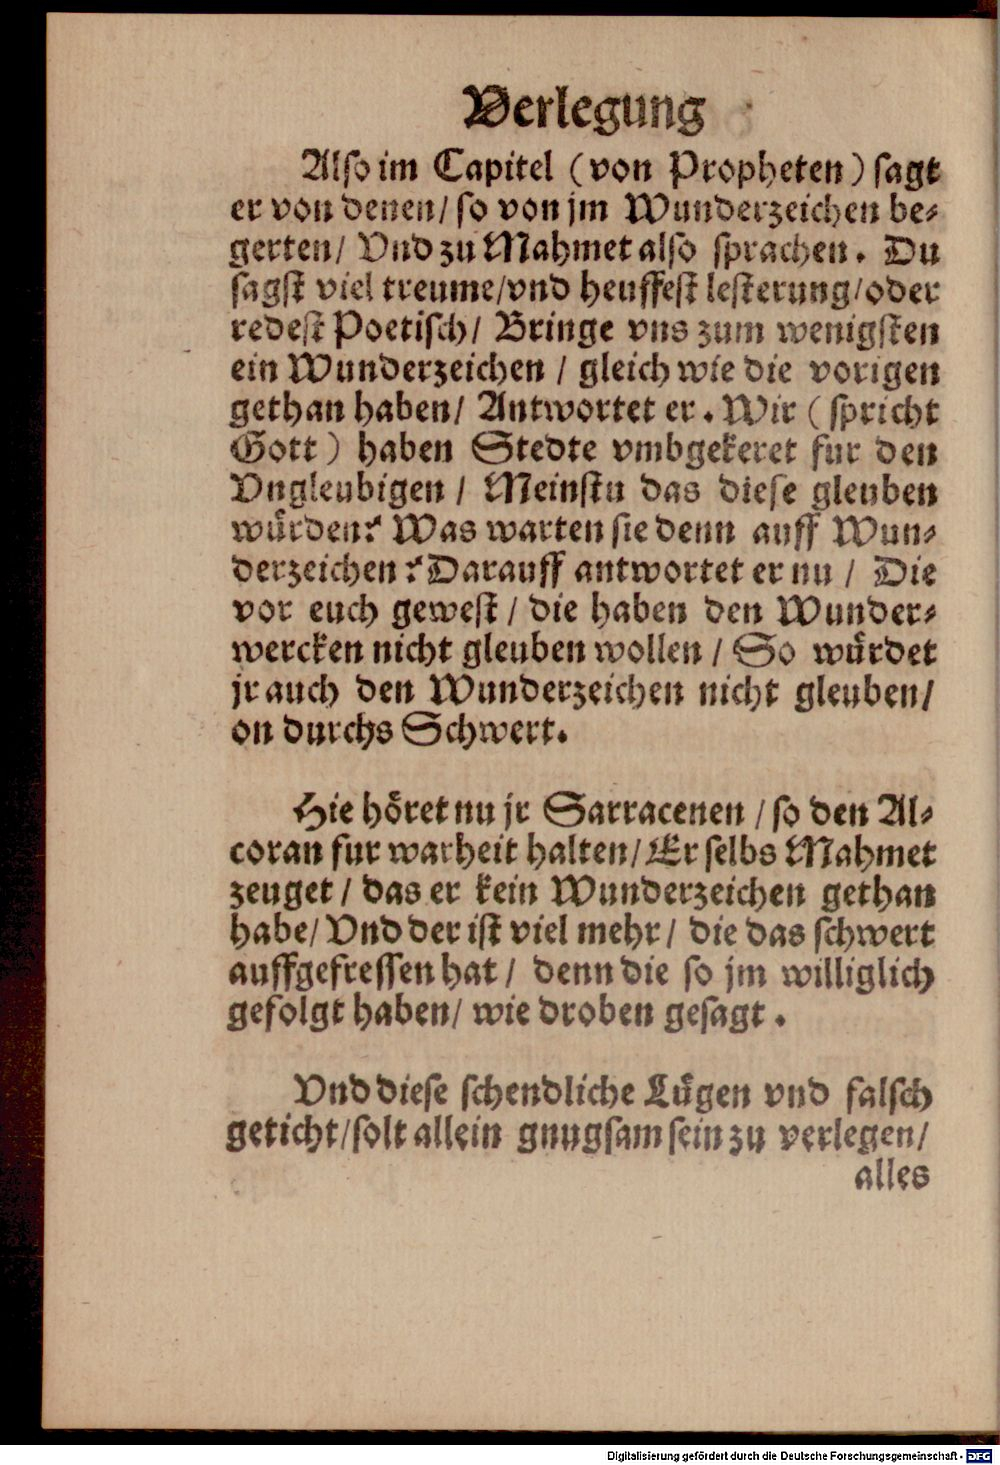 Verlegung
Also im Capitel (von Propheten) sagt
er von denen/ so von jm Wunderzeichen be⸗
gerten/ Vnd zu Mahmet also sprachen. Du
sagst viel treume/vnd heuffest lesterung/oder
redest Poetisch/ Bringe vns zum wenigsten
ein Wunderzeichen / gleich wie die vorigen
gethan haben/ Antwortet er. Wir (spricht
Gott) haben Stedte vmbgekeret fur den
Vngleubigen / Meinstu das diese gleuben
würden? Was warten sie denn auff Wun⸗
derzeichen? Darauff antwortet er nu / Die
vor euch gewest / die haben den Wunder⸗
wercken nicht gleuben wollen / So würdet
jr auch den Wunderzeichen nicht gleuben/
on durchs Schwert.
Hie höret nu jr Sarracenen / so den Al⸗
coran fur warheit halten/ Er selbs Mahmet
zeuget / das er kein Wunderzeichen gethan
habe/ Vnd der ist viel mehr / die das schwert
auffgefressen hat / denn die so jm williglich
gefolgt haben/ wie droben gesagt.
Vnd diese schendliche Lügen vnd falsch
geticht/solt allein gnugsam sein zu verlegen/
alles
Digitalisierung gefördert durch die Deutsche Forschungsgemeinschaft - DFG